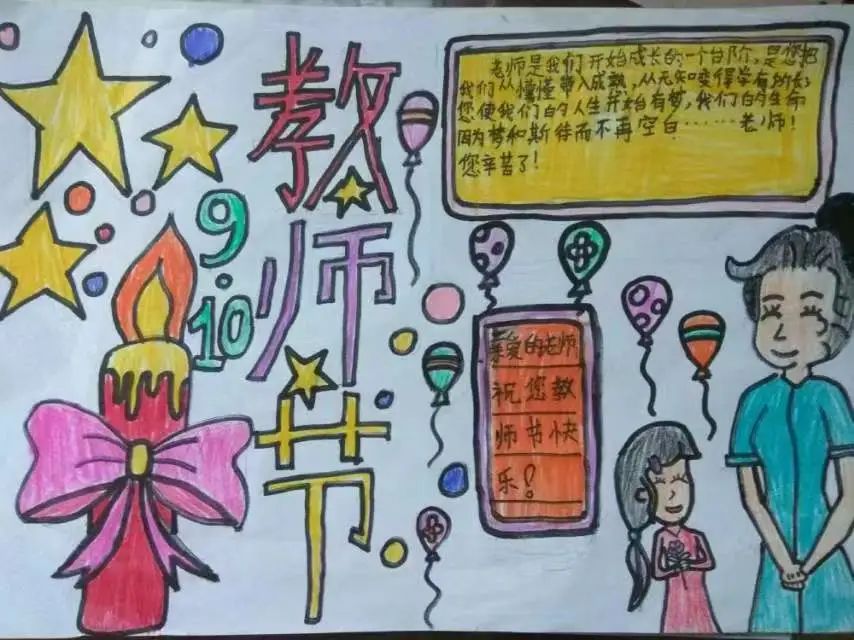 教师节
9.10
老师是我们开始成长的一个台阶,是您把
我们从懵懂带入成熟,从无知变得学有所长
您使我们的人生开始有梦,我们的生命
因为梦和斯待而不再空白……老师!
您辛苦了!
亲爱的老师
祝您教
师节快
乐!